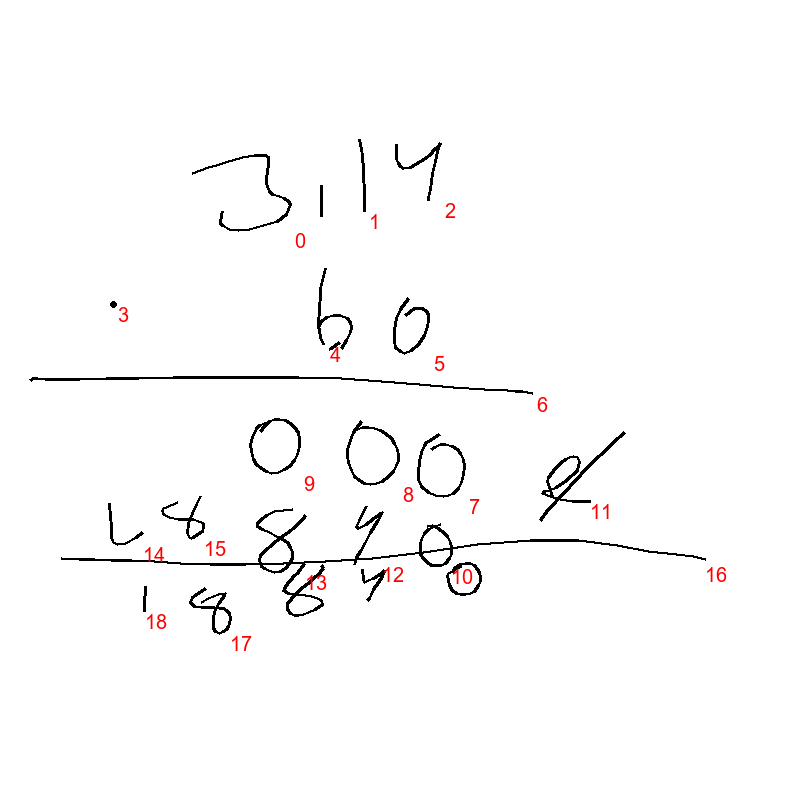 3,14
0 1 2
60
3 4 5
6
000
9 8 7 11
8840
14 15 13 12 10 16
18840
18 17